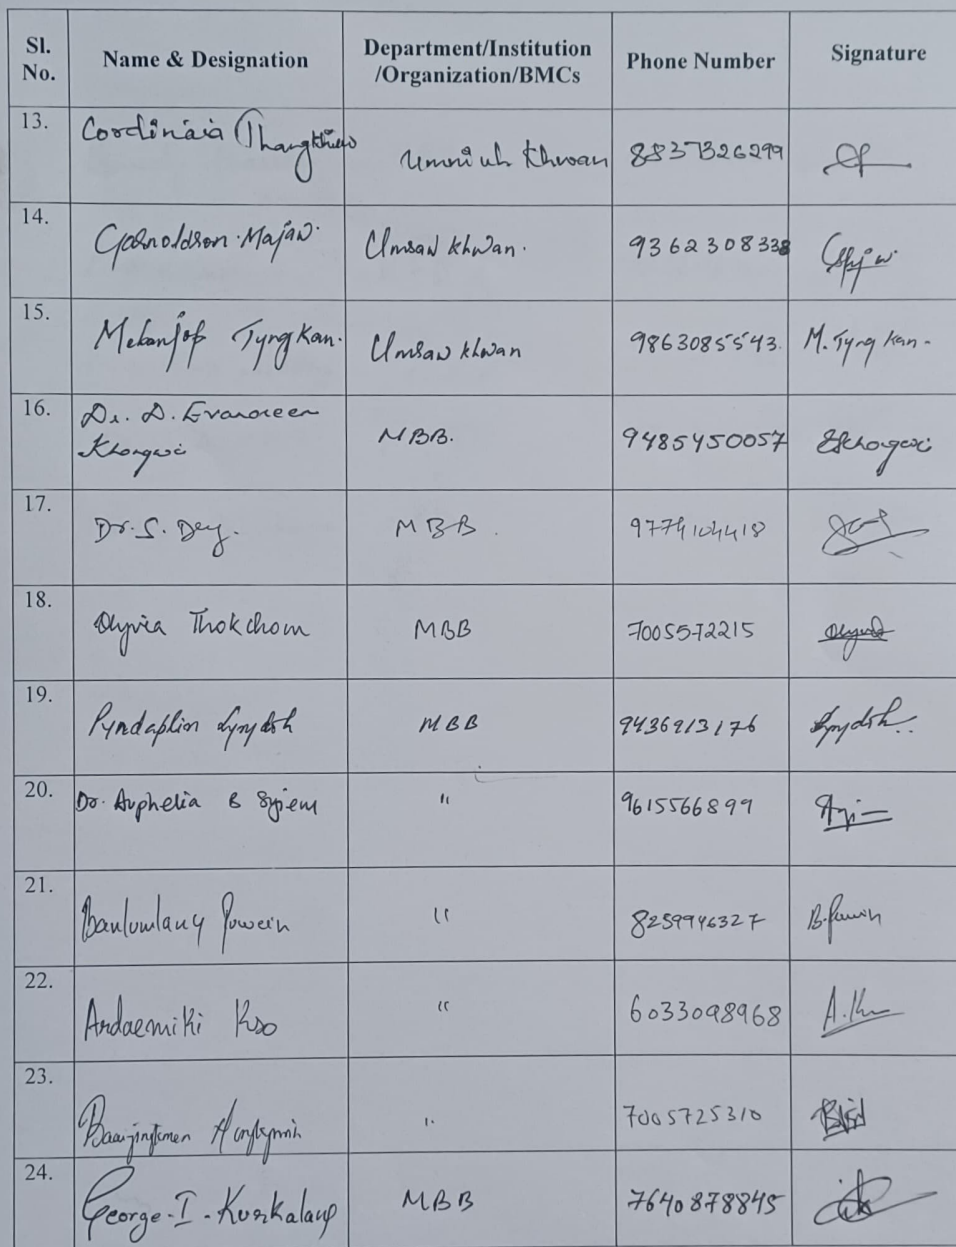 Sl. No. Name & Designation Department/Institution /Organization/BMCs Phone Number Signature
13. Thangkhiew Khwan 8837326299
14. Majaw. Umsaw khwan. 9362308338
15. Tyngkan. Umsaw khwan 9863085543. M. Tyngkan-
16. Dr. D. Evanoreen Khongwi MBB. 9485450057 Khongwi
17. Dr. S. Dey. MBB. 9774104418
18. Olyvia Thokchom MBB 7005572215
19. Pyndaplin Lyngdoh MBB 9436913176 Lyngdoh
20. Dr. Avphelia B Syiem " 9615566899
21. " 8259946327 B.
22. Ardaemiki Kso " 6033098968 A.
23. " 7005725310
24. George. I. MBB 7640878845